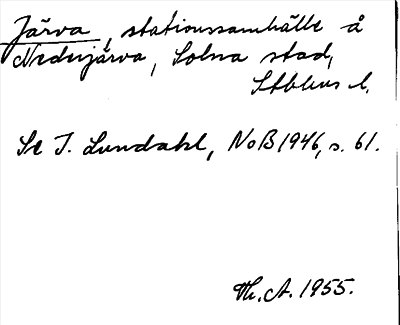 Järva, stationssamhälle å
Nederjärva, Solna stad,
Stblms l.
Se I. Lundahl, NoB 1946, s. 61.
Th. A. 1955.